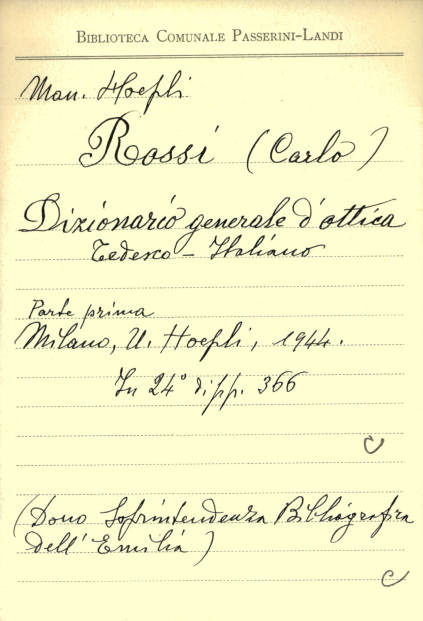 BIBLIOTECA COMUNALE PASSERINI-LANDI
Man. Hoepli
Rossi (Carlo)
Dizionario generale d'ottica
Tedesco - Italiano
Parte prima
Milano, U. Hoepli, 1944.
In 24° di pp. 366
C
(Dono Soprintendenza Bibliografica
dell'Emilia)
C